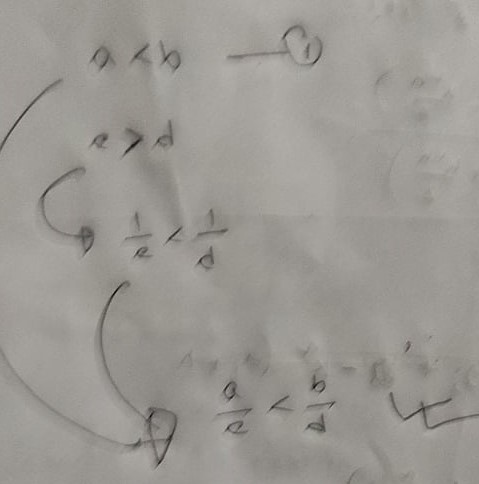 a < b — ①
c > d
1/c < 1/d
a/c < b/d